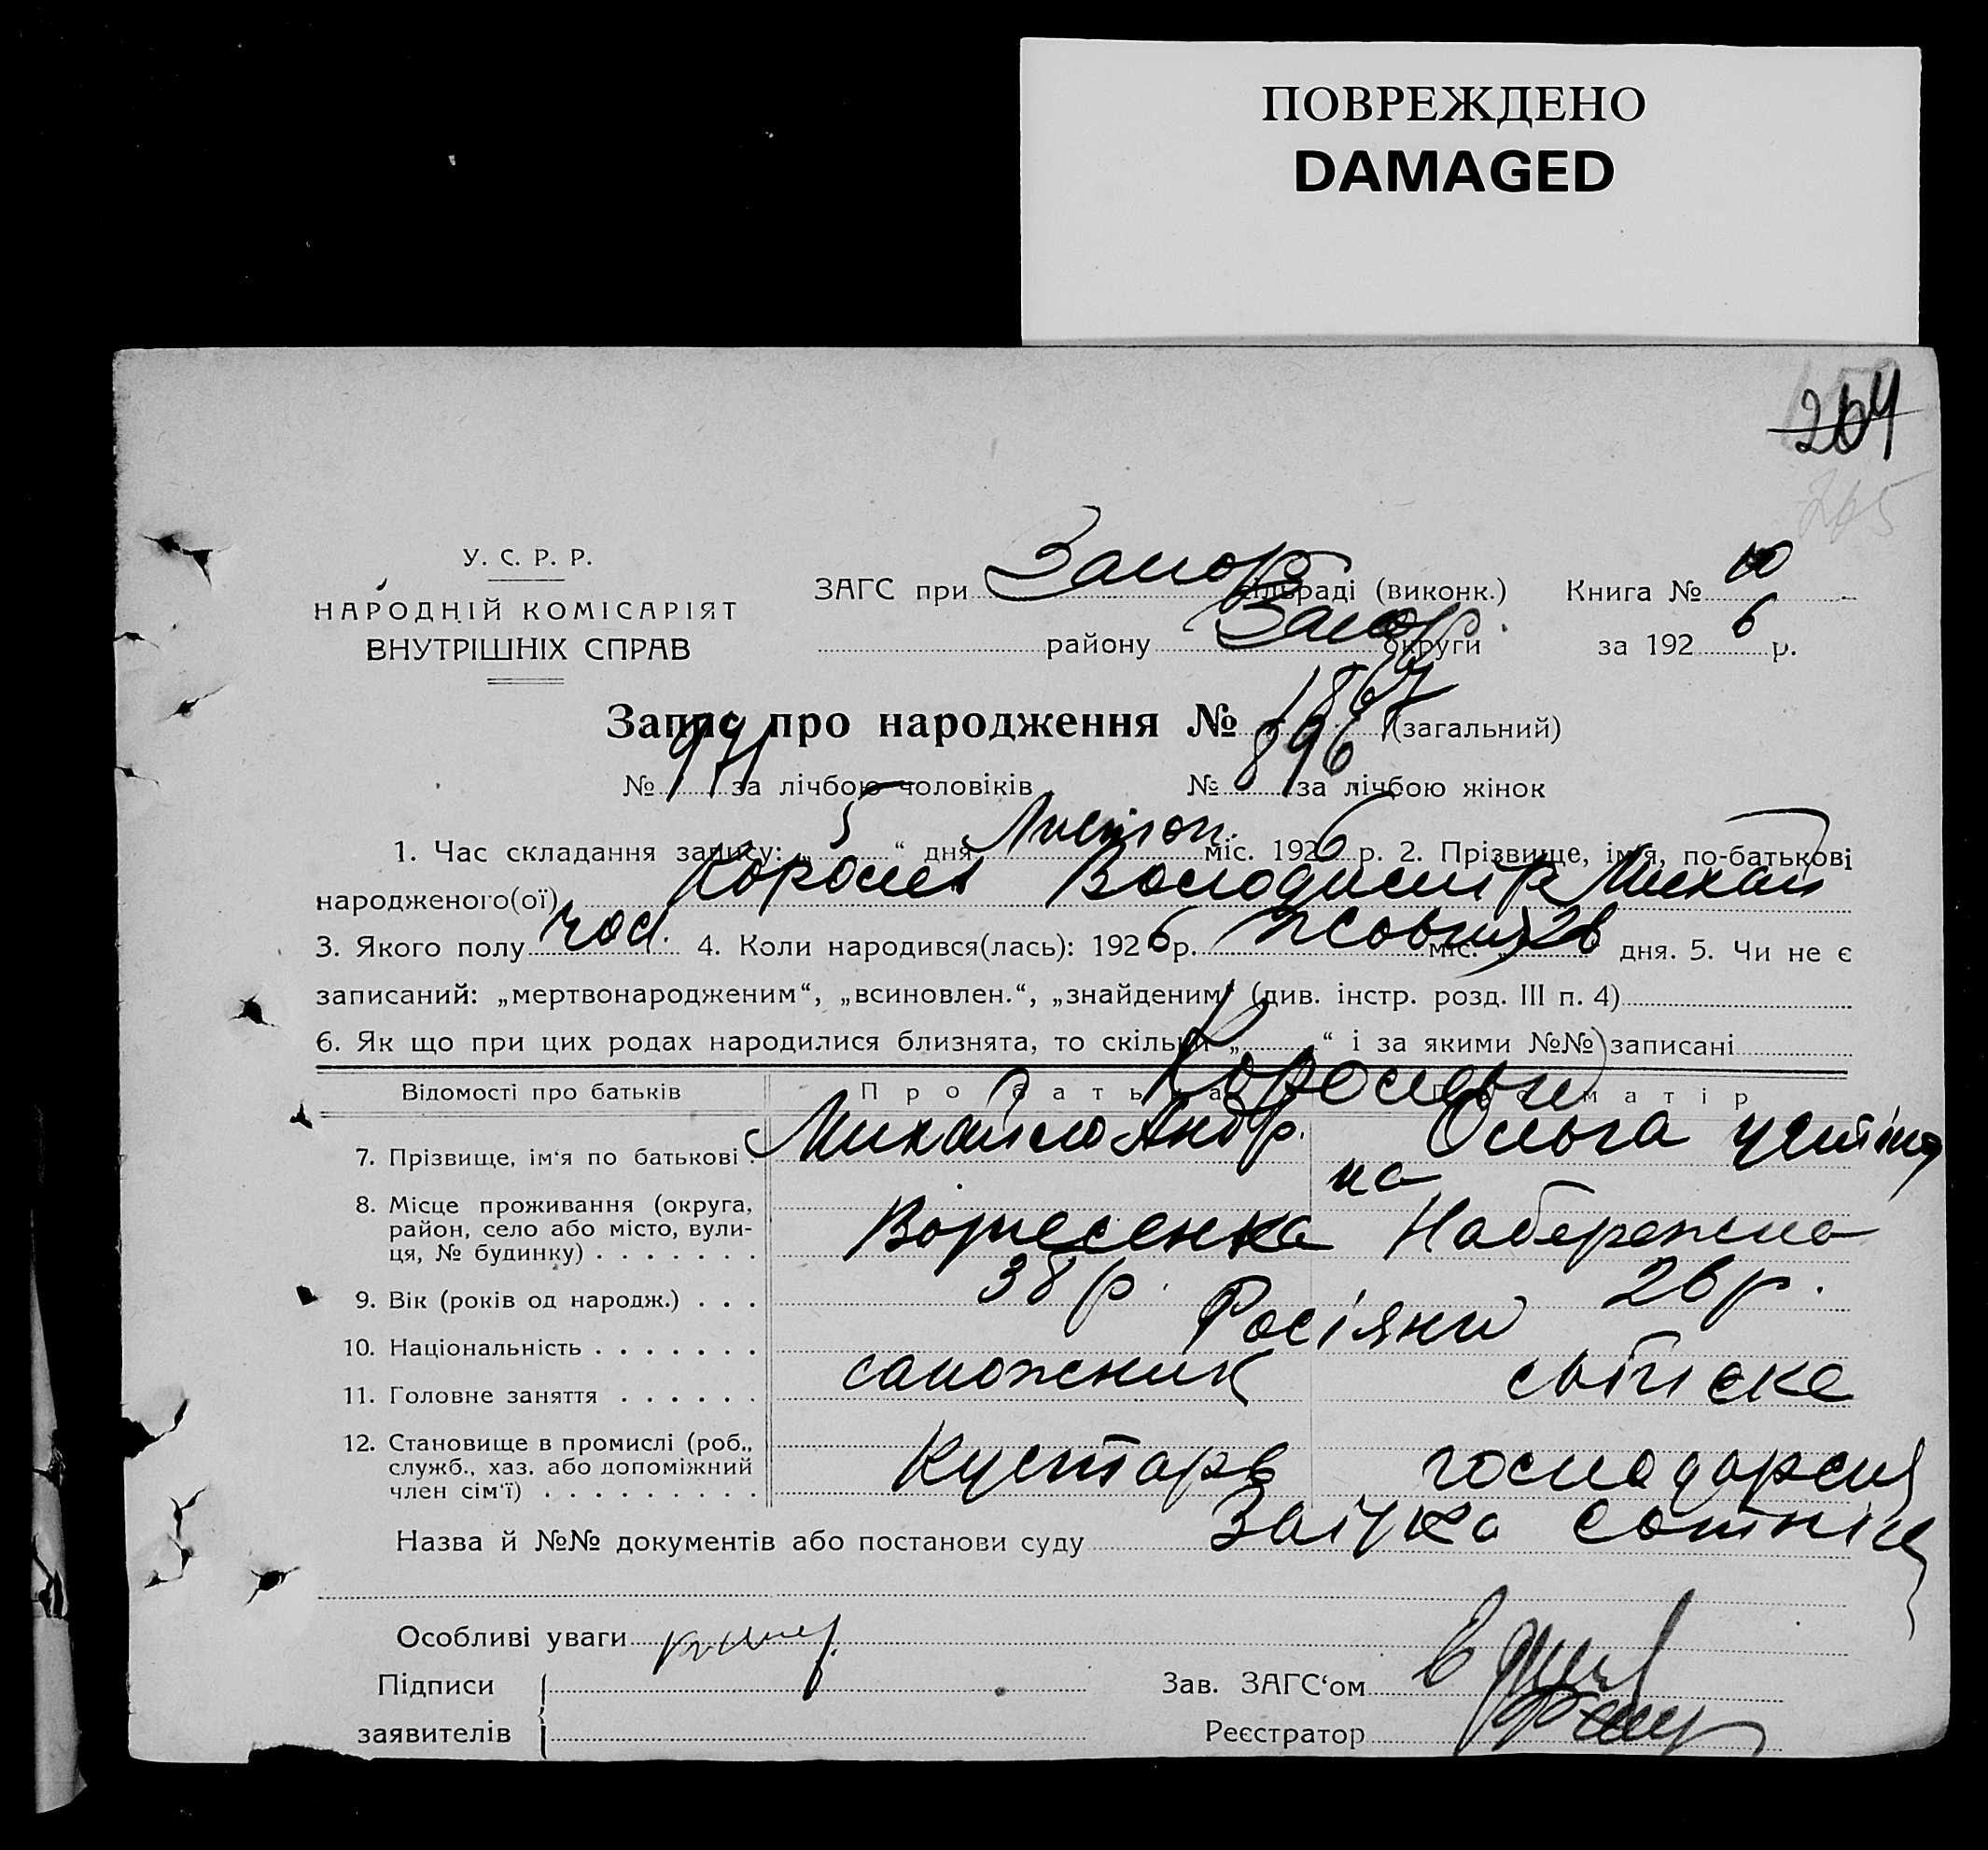 ПОВРЕЖДЕНО
DAMAGED
264
265
У. С. Р. Р.
НАРОДНІЙ КОМІСАРІЯТ
ВНУТРІШНІХ СПРАВ
ЗАГС при Запор сільраді (виконк.) Книга № 10
району Запор. округи за 1926 р.
Запис про народження № 1867 (загальний)
№ 971 за лічбою чоловіків № 896 за лічбою жінок
1. Час складання запису: „5“ дня Листоп. міс. 1926 р. 2. Прізвище, ім'я, по-батькові
народженого(ої) Королев Володимир Михай
3. Якого полу чол. 4. Коли народився(лась): 1926 р. Жовтня міс. „26 дня. 5. Чи не є
записаний: „мертвонародженим“, „всиновлен.“, „знайденим“ (див. інстр. розд. III п. 4)
6. Як що при цих родах народилися близнята, то скільки „ “ і за якими №№ записані
Відомості про батьків Про батька Про матір
Королеви
7. Прізвище, ім'я по батькові Михайло Андр. Ольга Устінов
на
8. Місце проживання (округа,
район, село або місто, вули-
ця, № будинку) Вознесенка Набережна
9. Вік (років од народж.) 38 р. 26 р.
10. Національність Росіяни
11. Головне заняття сапожник хатнє
12. Становище в промислі (роб.,
служб., хаз. або допоміжний
член сім'ї) Кустарь господарся
Назва й №№ документів або постанови суду
Особливі уваги
Підписи
заявителів
Зав. ЗАГС'ом
Реєстратор